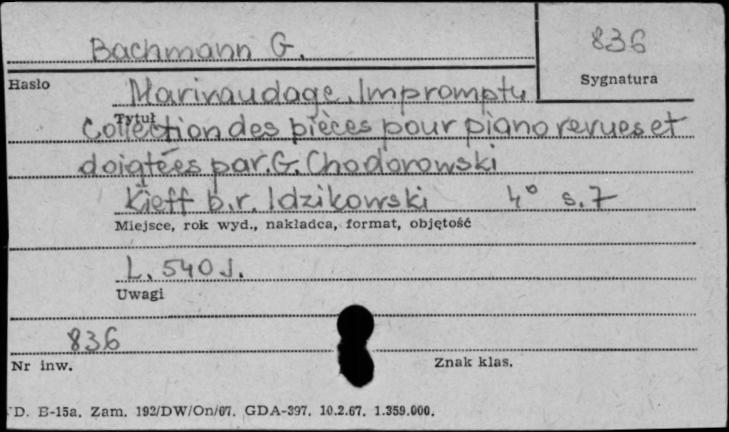 Bachmann G.
836
Hasło
Sygnatura
Marivaudage. Impromptu
Tytuł
Collection des pièces pour piano revues et
doigtées par. G. Chodorowski
Kieff b.r. Idzikowski 4° s. 7
Miejsce, rok wyd., nakładca, format, objętość
L. 540 J.
Uwagi
836
Nr inw.
Znak klas.
D. E-15a. Zam. 192/DW/On/67. GDA-397. 10.2.67. 1.359.000.